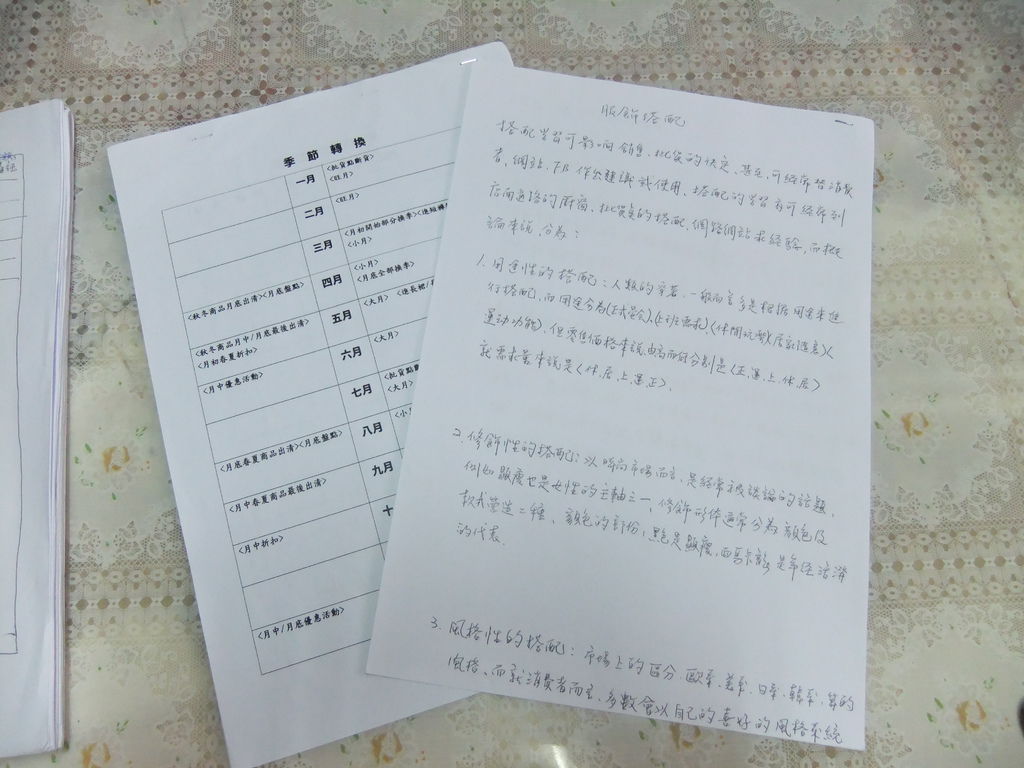 季節轉換
一月 <批貨點斷貨>
<旺月>
二月 <旺月>
三月 <月初開始部分換季><連短褲
<小月>
<秋冬商品月底出清><月底盤點> 四月 <小月>
<月底全部換季>
<秋冬商品月中/月底最後出清> 五月 <大月> <連長裙/
<月初春夏折扣>
<月中優惠活動> 六月 <大月>
七月 <批貨點斷
<大月>
<月底春夏商品出清><月底盤點> 八月 <小
<月中春夏商品最後出清> 九月
<月中折扣> 十
<月中/月底優惠活動>
服飾搭配
搭配學習可影响銷售、批貨的快定、甚至可經常替消費
者、網站、FB 作出建議或使用、搭配的學習有可經常到
店面通路的廚窗、批貨點的搭配、網路網站求經驗,而概
論來說、分為:
1. 用途性的搭配:人類的穿著、一般而言多是根據用途來進
行搭配,而用途分為(正式宴会)、(上班需求)(休閒玩歡)(居家隨意)(
運動功能)、但零售価格來說由高而低分別是(正、運、上、休、居)
就需求量來說是(休、居、上、運、正)、
2. 修飾性的搭配:以時尚市場而言、是經常被談論的話題、
例如顯瘦也是女性的主軸之一、修飾形体通常分為顏色及
款式營造二種、顏色的部份,黑色是顯瘦,而馬卡龍是年輕活潑
的代表、
3. 風格性的搭配:市場上的區分、歐系、美系、日系、韓系、等的
風格、而就消費者而言、多數會以自己的喜好的風格系統